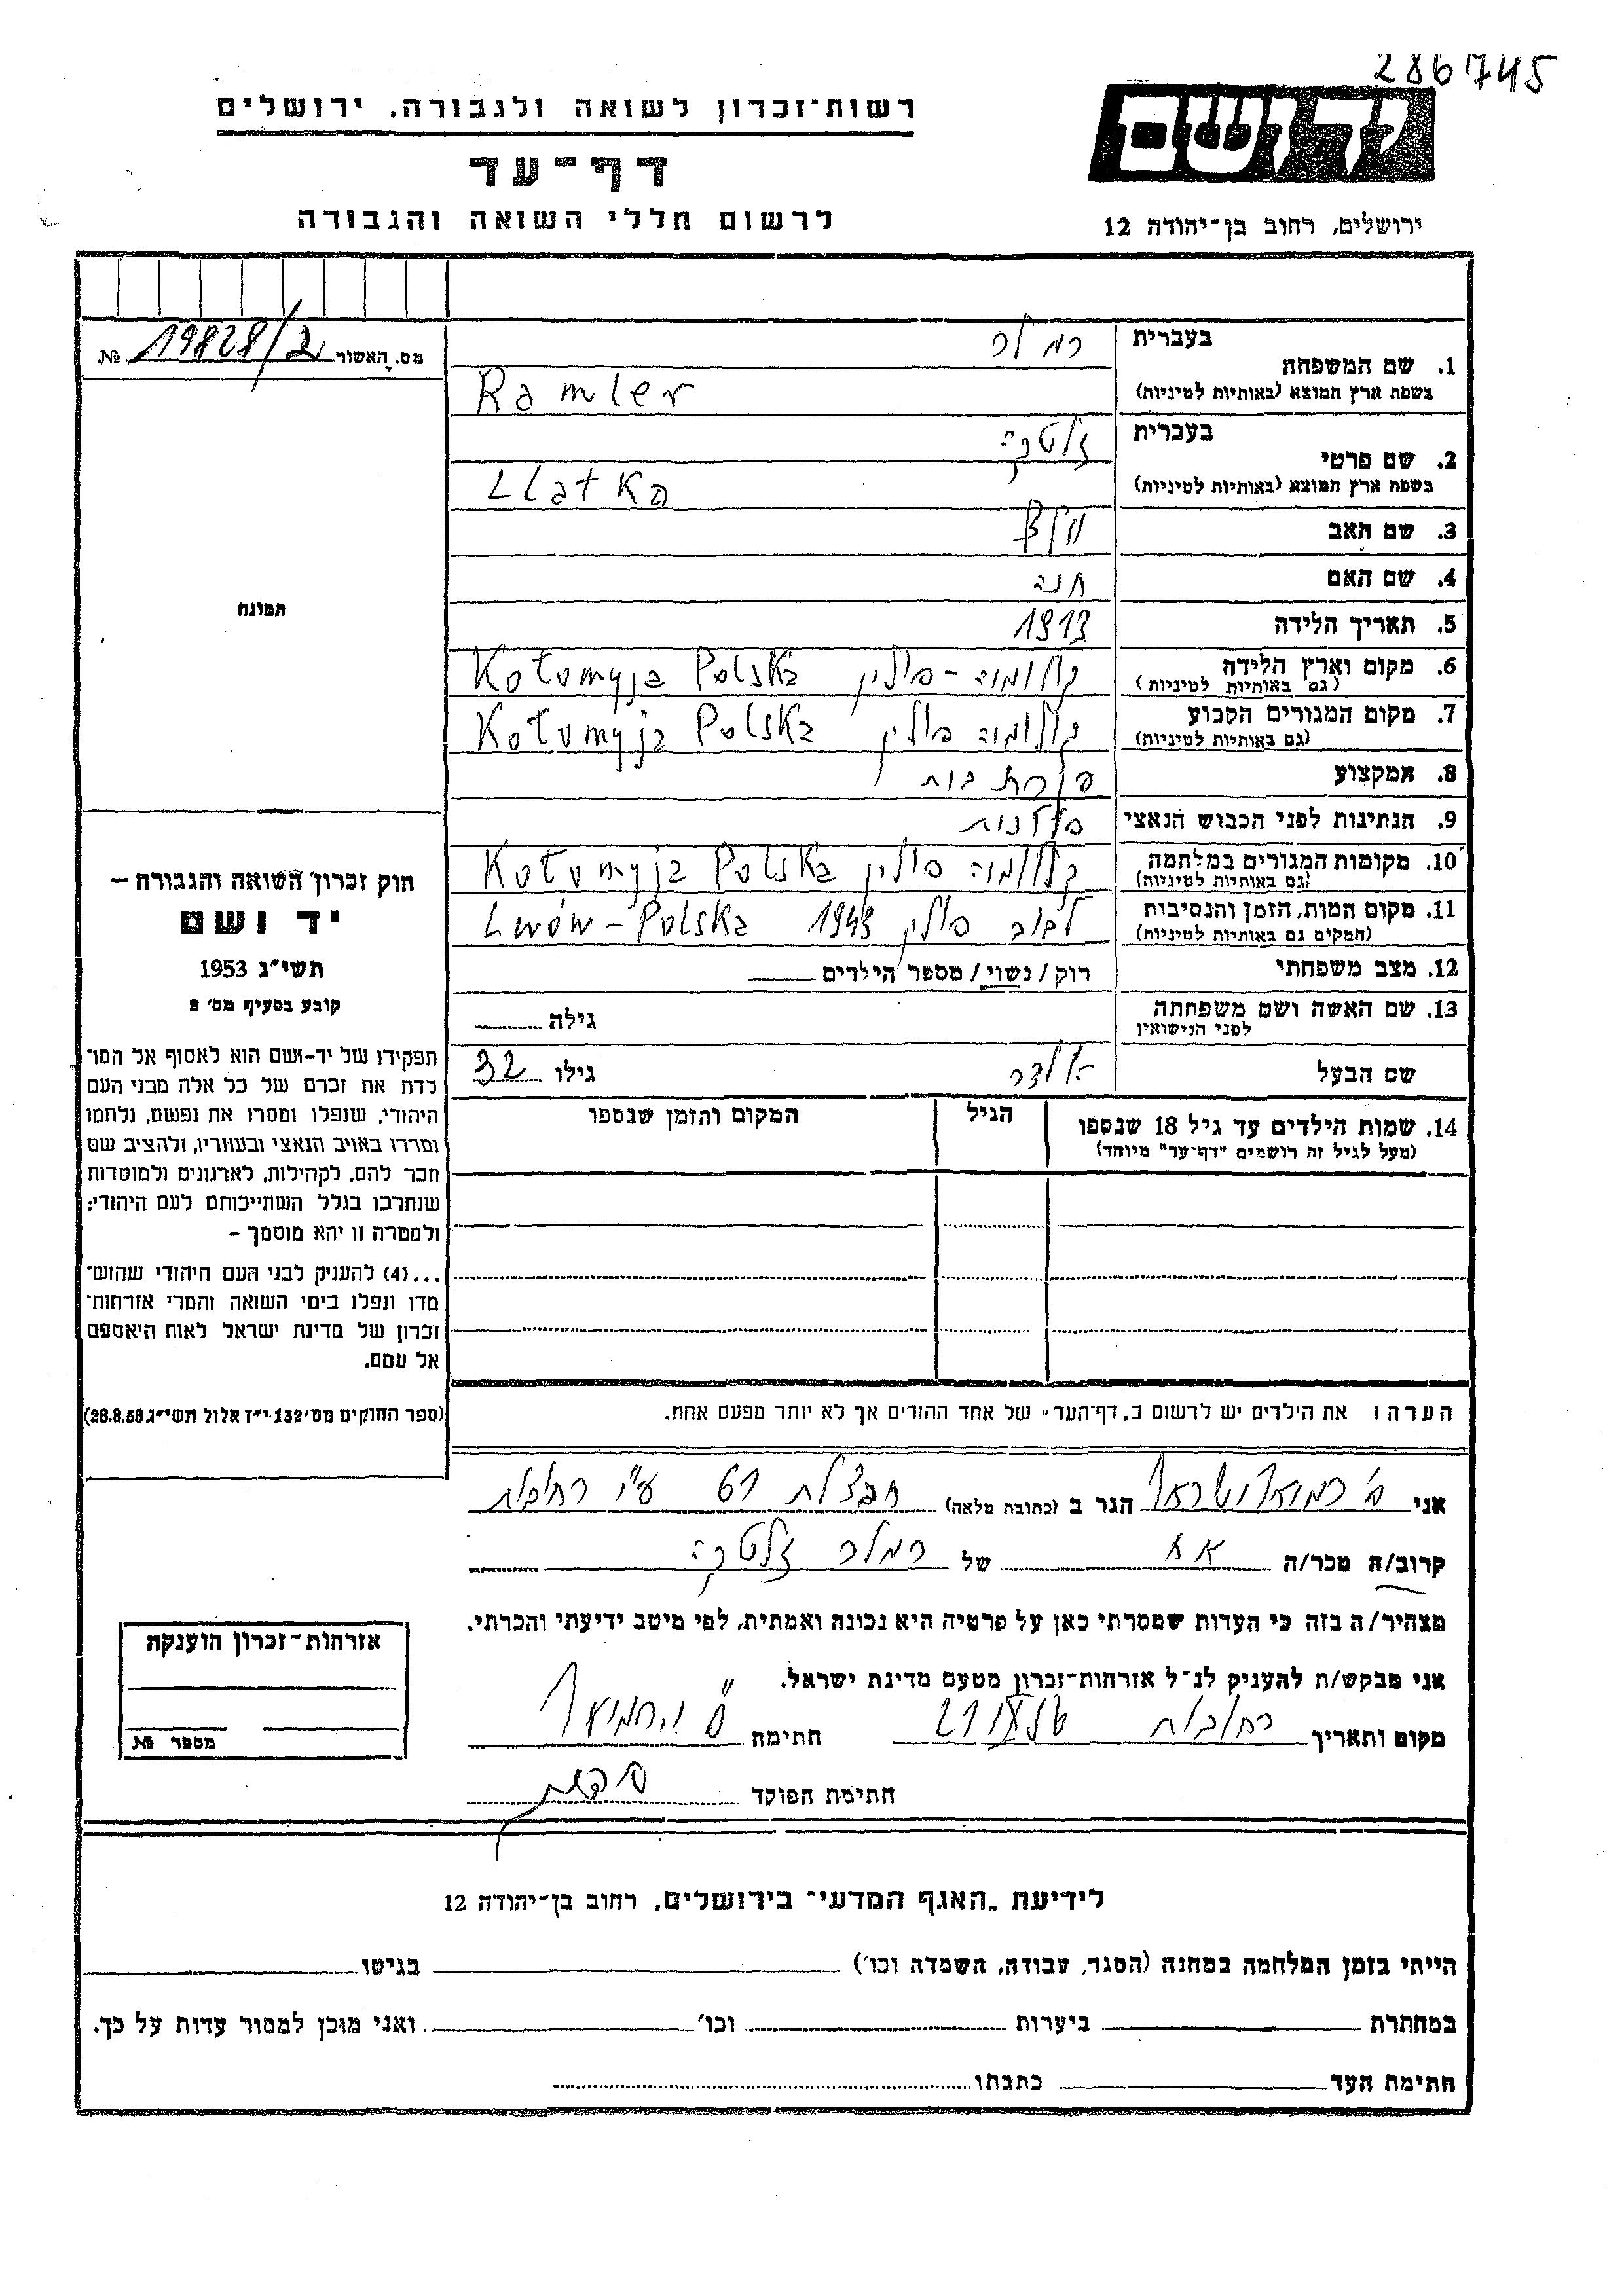 286745
רשות־זכרון לשואה ולגבורה, ירושלים
יד ושם
דף־עד
לרשום חללי השואה והגבורה
ירושלים, רחוב בן־יהודה 12
מס. האשור 19828/2 №
בעברית רמלר
1. שם המשפחה
בשפת ארץ המוצא (באותיות לטיניות) Ramler
בעברית זלטקה
2. שם פרטי
בשפת ארץ המוצא (באותיות לטיניות) Llatka
3. שם האב
4. שם האם חנה
5. תאריך הלידה 1913
6. מקום וארץ הלידה קולומיה - פולין Kołomyja Polska
(גם באותיות לטיניות)
7. מקום המגורים הקבוע קולומיה פולין Kołomyja Polska
(גם באותיות לטיניות)
8. המקצוע עקרת בית
9. הנתינות לפני הכבוש הנאצי פולנית
10. מקומות המגורים במלחמה קולומיה פולין Kołomyja Polska
(גם באותיות לטיניות)
11. מקום המות, הזמן והנסיבות לבוב פולין 1943 Lwów - Polska
(המקום גם באותיות לטיניות)
12. מצב משפחתי רוק / נשוי / מספר הילדים
13. שם האשה ושם משפחתה גילה
לפני הנישואין
שם הבעל גילו 32
14. שמות הילדים עד גיל 18 שנספו הגיל המקום והזמן שנספו
(מעל לגיל זה רושמים "דף־עד" מיוחד)
הערה: את הילדים יש לרשום ב"דף־העד" של אחד ההורים אך לא יותר מפעם אחת.
תמונה
חוק זכרון השואה והגבורה —
יד ושם
תשי"ג 1953
קובע בסעיף מס' 2
תפקידו של יד-ושם הוא לאסוף אל המו־
לדת את זכרם של כל אלה מבני העם
היהודי, שנפלו ומסרו את נפשם, נלחמו
ומרדו באויב הנאצי ובעוזריו, ולהציב שם
וזכר להם, לקהילות, לארגונים ולמוסדות
שנחרבו בגלל השתייכותם לעם היהודי;
ולמטרה זו יהא מוסמך —
...(4) להעניק לבני העם היהודי שהוש־
מדו ונפלו בימי השואה והמרי אזרחות־
זכרון של מדינת ישראל לאות היאספם
אל עמם.
(ספר החוקים מס' 132, י"ז אלול תשי"ג 28.8.53)
אני הגר ב (כתובת מלאה) חבצלת 61 ע"י רחובות
קרוב/ה מכר/ה אח של רמלר זלטקה
מצהיר/ה בזה כי העדות שמסרתי כאן על פרטיה היא נכונה ואמתית, לפי מיטב ידיעתי והכרתי.
אני מבקש/ת להעניק לנ"ל אזרחות־זכרון מטעם מדינת ישראל.
מקום ותאריך רחובות חתימה
חתימת הפוקד
אזרחות־זכרון הוענקה
מספר №
לידיעת "האגף המדעי" בירושלים, רחוב בן־יהודה 12
הייתי בזמן המלחמה במחנה (הסגר, עבודה, השמדה וכו') בגיטו
במחתרת ביערות וכו' ואני מוכן למסור עדות על כך.
חתימת העד כתבתו